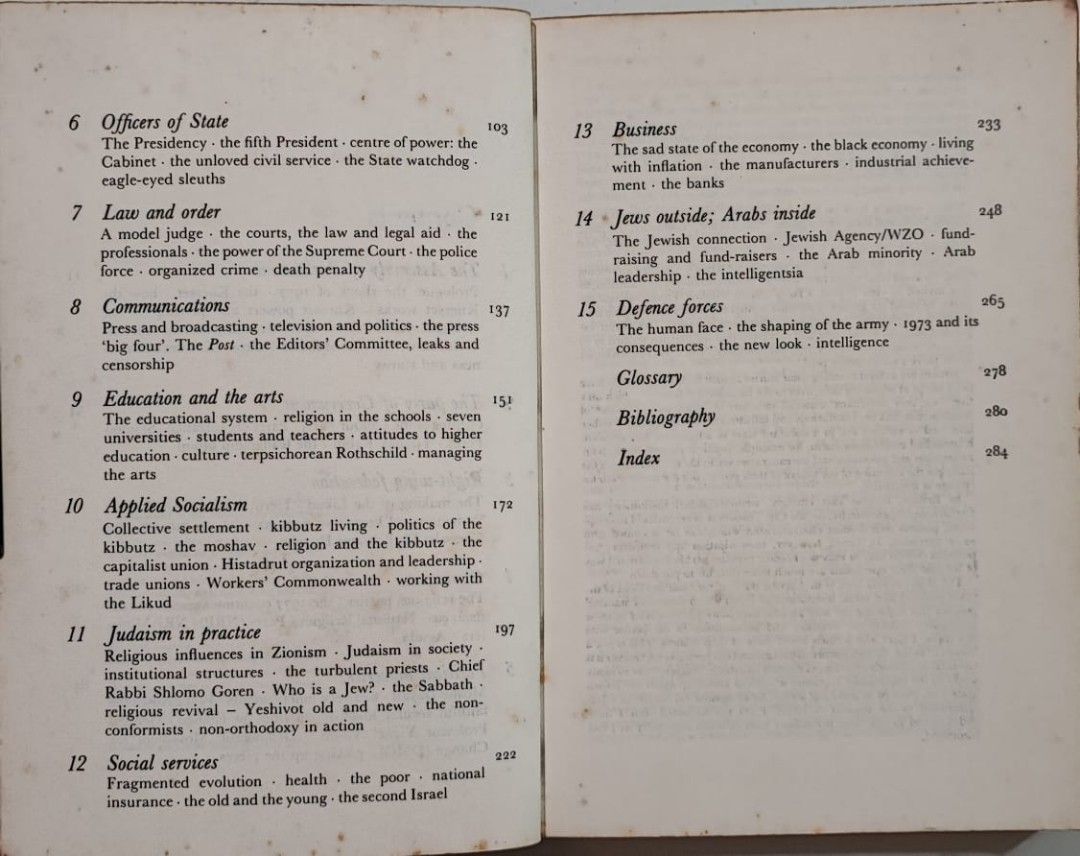 6 Officers of State 103
The Presidency · the fifth President · centre of power: the
Cabinet · the unloved civil service · the State watchdog ·
eagle-eyed sleuths
7 Law and order 121
A model judge · the courts, the law and legal aid · the
professionals · the power of the Supreme Court · the police
force · organized crime · death penalty
8 Communications 137
Press and broadcasting · television and politics · the press
‘big four’. The Post · the Editors’ Committee, leaks and
censorship
9 Education and the arts 151
The educational system · religion in the schools · seven
universities · students and teachers · attitudes to higher
education · culture · terpsichorean Rothschild · managing
the arts
10 Applied Socialism 172
Collective settlement · kibbutz living · politics of the
kibbutz · the moshav · religion and the kibbutz · the
capitalist union · Histadrut organization and leadership ·
trade unions · Workers’ Commonwealth · working with
the Likud
11 Judaism in practice 197
Religious influences in Zionism · Judaism in society ·
institutional structures · the turbulent priests · Chief
Rabbi Shlomo Goren · Who is a Jew? · the Sabbath ·
religious revival – Yeshivot old and new · the non-
conformists · non-orthodoxy in action
12 Social services 222
Fragmented evolution · health · the poor · national
insurance · the old and the young · the second Israel
13 Business 233
The sad state of the economy · the black economy · living
with inflation · the manufacturers · industrial achieve-
ment · the banks
14 Jews outside; Arabs inside 248
The Jewish connection · Jewish Agency/WZO · fund-
raising and fund-raisers · the Arab minority · Arab
leadership · the intelligentsia
15 Defence forces 265
The human face · the shaping of the army · 1973 and its
consequences · the new look · intelligence
Glossary 278
Bibliography 280
Index 284